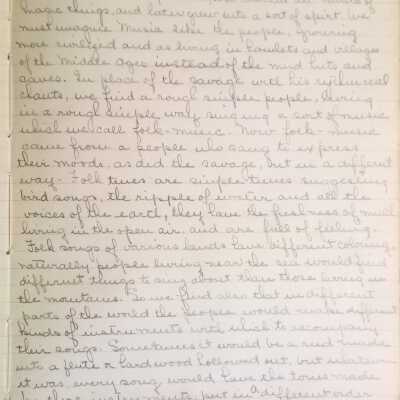 magic things, and later grew into a sort of spirit. We
must imagine Music like the people, growing
more civilized and as living in hamlets and villages
of the Middle Ages instead of the mud huts and
caves. In place of the savage with his
chants, we find a rough simple people, living
in a rough simple way singing a sort of music
which we call folk-music. Now folk-music
came from a people who sang to express
their moods, as did the savage, but in a different
way. Folk tunes are simple tunes suggesting
bird songs, the ripple of water and all the
voices of the earth, they have the freshness of much
living in the open air, and are full of feeling.
Folk songs of various lands have different coloring
naturally people living near the sea would find
different things to sing about than those living in
the mountains. Some find also that in different
parts of the world the people would make different
kinds of instruments with which to accompany
their songs. Sometimes it would be a reed made
into a flute or hardwood hollowed out, but whatever
it was, every song would have the tones made
by these instruments, put in a different order